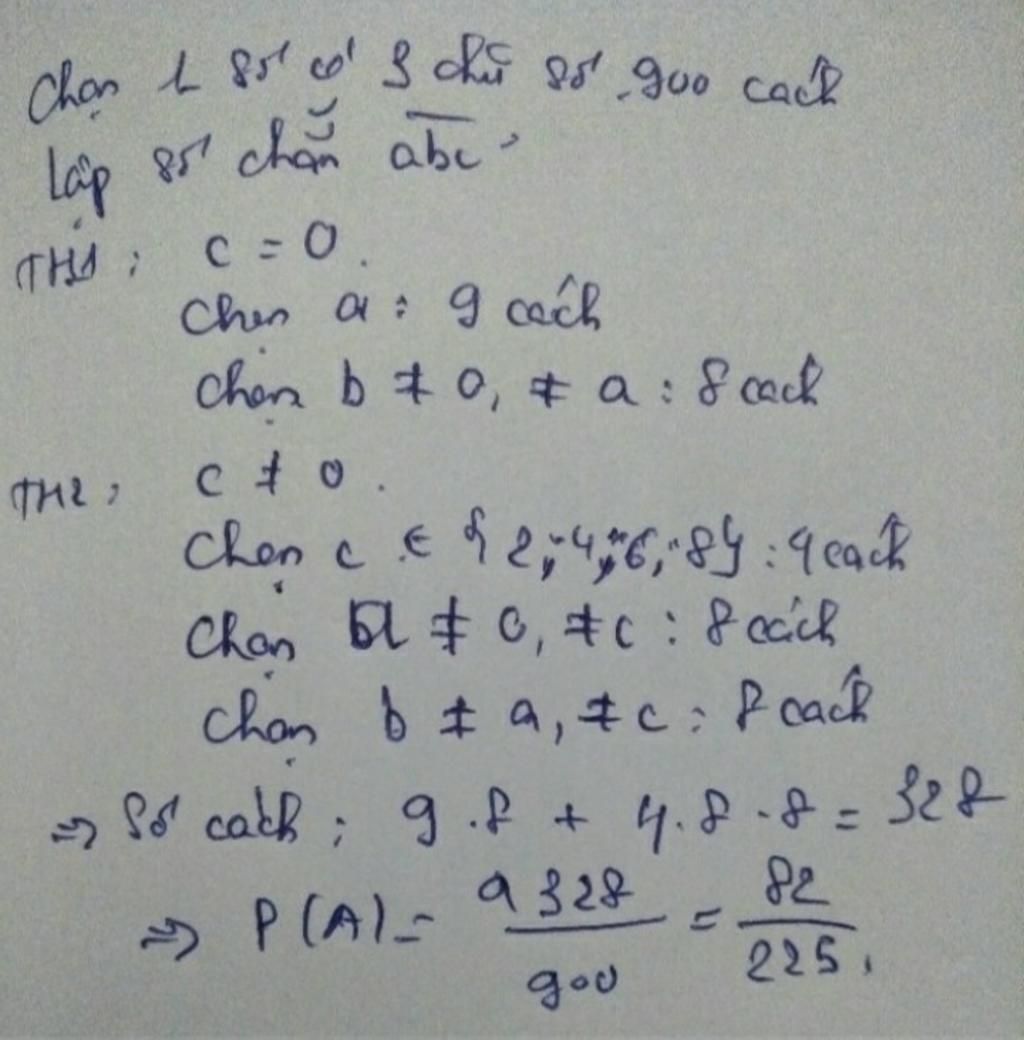 Chọn 1 số có 3 chữ số 900 cách
Lập số chẵn abc
TH1: c = 0.
Chọn a: 9 cách
Chọn b ≠ 0, ≠ a: 8 cách
TH2: c ≠ 0.
Chọn c ∈ {2; 4; 6; 8}: 4 cách
Chọn a ≠ 0, ≠ c: 8 cách
Chọn b ≠ a, ≠ c: 8 cách
⇒ Số cách: 9.8 + 4.8.8 = 328
⇒ P(A) = 328/900 = 82/225.